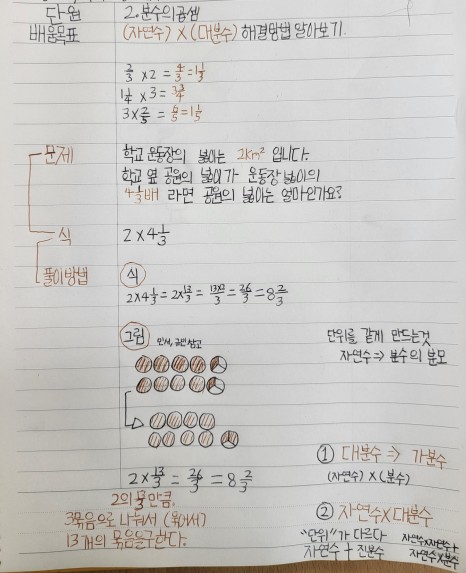 단원 2. 분수의 곱셈
배움목표 (자연수) X (대분수) 해결방법 알아보기.
2/3 x 2 = 4/3 = 1 1/3
1 1/4 x 3 = 3 3/4
3 x 2/5 = 6/5 = 1 1/5
문제 학교 운동장의 넓이는 2km² 입니다.
학교 옆 공원의 넓이가 운동장 넓이의
4 1/3배 라면 공원의 넓이는 얼마인가요?
식 2 x 4 1/3
풀이방법 식
2 x 4 1/3 = 2 x 13/3 = 13x2/3 = 26/3 = 8 2/3
그림
단위를 같게 만드는것
자연수 => 분수의 분모
2 x 13/3 = 26/3 = 8 2/3
2의 13/3만큼.
3묶음으로 나눠서 (묶어서)
13개의 묶음을구한다.
① 대분수 => 가분수
(자연수) X (분수)
② 자연수X대분수
"단위"가 다르다
자연수 + 진분수
자연수x자연수 +
자연수x분수